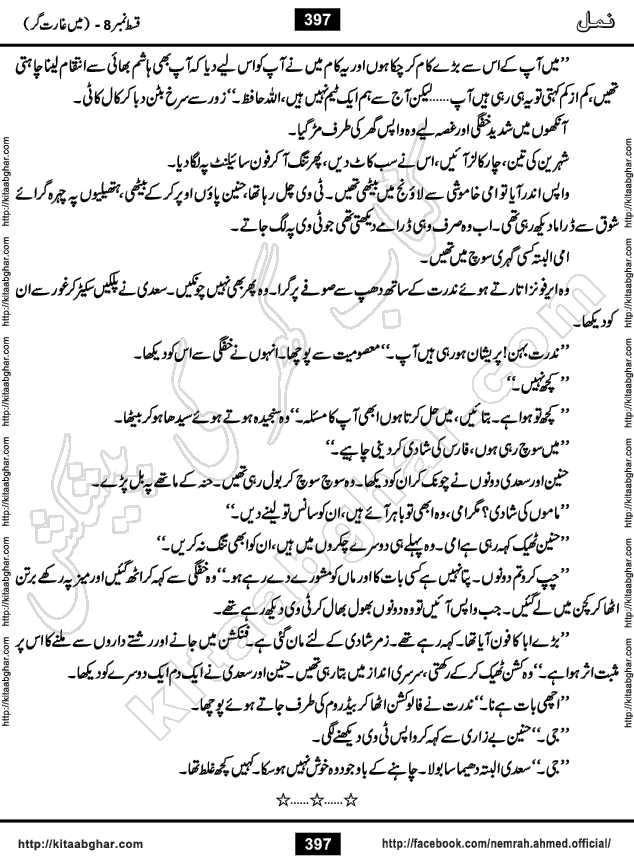 نمل
397
قسط نمبر 8 - (میں غارت گر)
’’میں آپ کے اس سے بڑے کام کر چکا ہوں اور یہ کام میں نے آپ کو اس لیے دیا کہ آپ بھی ہاشم بھائی سے انتقام لینا چاہتی
تھیں، کم از کم کہتی تو یہی رہی ہیں آپ......لیکن آج سے ہم ایک ٹیم نہیں ہیں، اللہ حافظ۔‘‘ زور سے سرخ بٹن دبا کر کال کاٹی۔
آنکھوں میں شدید خفگی اور غصہ لیے وہ واپس گھر کی طرف مڑ گیا۔
شہرین کی تین، چار کالز آئیں، اس نے سب کاٹ دیں، پھر تنگ آ کر فون سائیلنٹ پہ لگا دیا۔
واپس اندر آیا تو امی خاموشی سے لاؤنج میں بیٹھی تھیں۔ ٹی وی چل رہا تھا، حنین پاؤں اوپر کر کے بیٹھی، ہتھیلیوں پہ چہرہ گرائے
شوق سے ڈراما دیکھ رہی تھی۔ اب وہ صرف وہی ڈرامے دیکھتی تھی جو ٹی وی پہ لگ جاتے۔
امی البتہ کسی گہری سوچ میں تھیں۔
وہ ایر فونز اتارتے ہوئے ندرت کے ساتھ دھپ سے صوفے پر گرا۔ وہ پھر بھی نہیں چونکیں۔ سعدی نے پلکیں سکیڑ کر غور سے ان
کو دیکھا۔
’’ندرت بہن! پریشان ہو رہی ہیں آپ۔‘‘ معصومیت سے پوچھا۔ انہوں نے خفگی سے اس کو دیکھا۔
’’کچھ نہیں۔‘‘
’’کچھ تو ہوا ہے۔ بتائیں، میں حل کرتا ہوں ابھی آپ کا مسئلہ۔‘‘ وہ سنجیدہ ہوتے ہوئے سیدھا ہو کر بیٹھا۔
’’میں سوچ رہی ہوں، فارس کی شادی کر دینی چاہیے۔‘‘
حنین اور سعدی دونوں نے چونک کر ان کو دیکھا۔ وہ سوچ سوچ کر بول رہی تھیں۔ حنہ کے ماتھے پہ بل پڑے۔
’’ماموں کی شادی؟ مگر امی، وہ ابھی تو باہر آئے ہیں، ان کو سانس تو لینے دیں۔‘‘
’’حنین ٹھیک کہہ رہی ہے امی۔ وہ پہلے ہی دوسرے چکروں میں ہیں، ان کو ابھی تنگ نہ کریں۔‘‘
’’چپ کرو تم دونوں۔ پتا نہیں ہے کسی بات کا اور ماں کو مشورے دے رہے ہو۔‘‘ وہ خفگی سے کہہ کر اٹھ گئیں اور میز پہ رکھے برتن
اٹھا کر کچن میں لے گئیں۔ جب واپس آئیں تو وہ دونوں بھول بھال کر ٹی وی دیکھ رہے تھے۔
’’بڑے ابا کا فون آیا تھا۔ کہہ رہے تھے۔ زمر شادی کے لئے مان گئی ہے۔ فنکشن میں جانے اور رشتے داروں سے ملنے کا اس پر
مثبت اثر ہوا ہے۔‘‘ وہ کشن ٹھیک کر کے رکھتی، سرسری انداز میں بتا رہی تھیں۔ حنین اور سعدی نے ایک دم ایک دوسرے کو دیکھا۔
’’اچھی بات ہے نا۔‘‘ ندرت نے فالو کشن اٹھا کر بیڈ روم کی طرف جاتے ہوئے پوچھا۔
’’جی۔‘‘ حنین بے زاری سے کہہ کر واپس ٹی وی دیکھنے لگی۔
’’جی۔‘‘ سعدی البتہ دھیما سا بولا۔ چاہنے کے باوجود وہ خوش نہیں ہو سکا۔ کہیں کچھ غلط تھا۔
☆......☆......☆
http://kitaabghar.com
397
http://facebook.com/nemrah.ahmed.official/
http://kitaabghar.com
http://kitaabghar.com
http://kitaabghar.com
http://kitaabghar.com
http://kitaabghar.com
http://kitaabghar.com
http://kitaabghar.com
http://kitaabghar.com
http://kitaabghar.com
http://kitaabghar.com
http://kitaabghar.com
http://kitaabghar.com
کتاب گھر کی پیشکش
kitaabghar.com